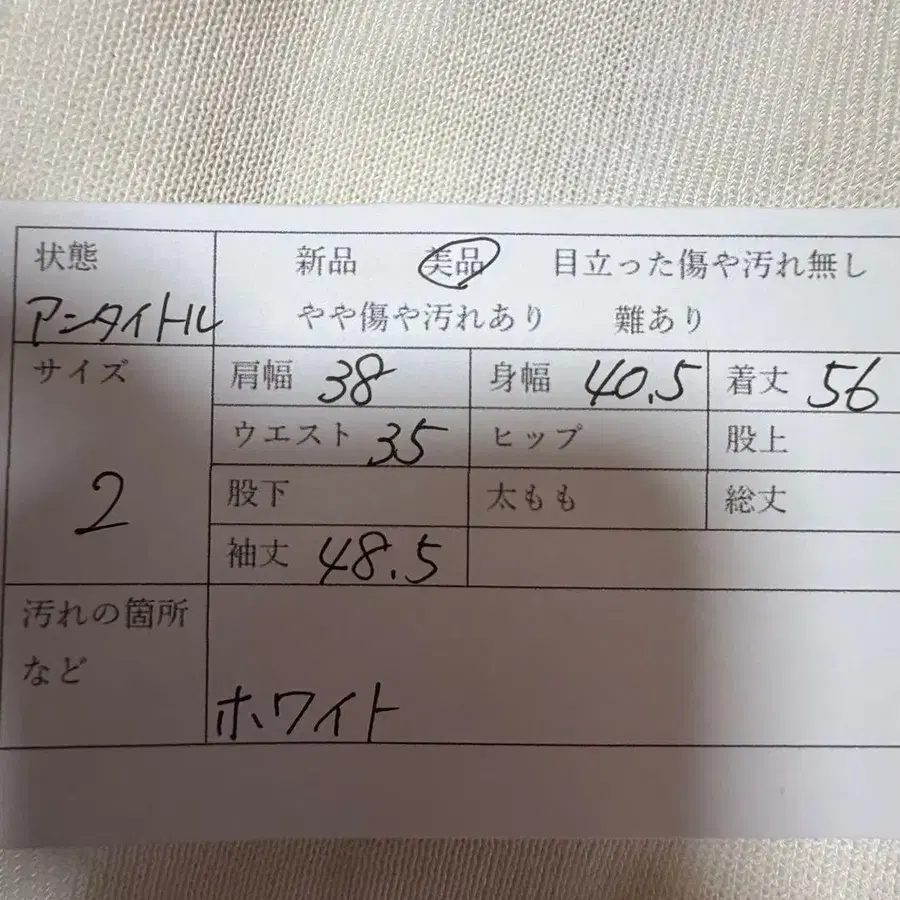 状態 新品 美品 目立った傷や汚れ無し
アンタイトル やや傷や汚れあり 難あり
サイズ 肩幅 38 身幅 40.5 着丈 56
ウエスト 35 ヒップ 股上
2 股下 太もも 総丈
袖丈 48.5
汚れの箇所
など
ホワイト